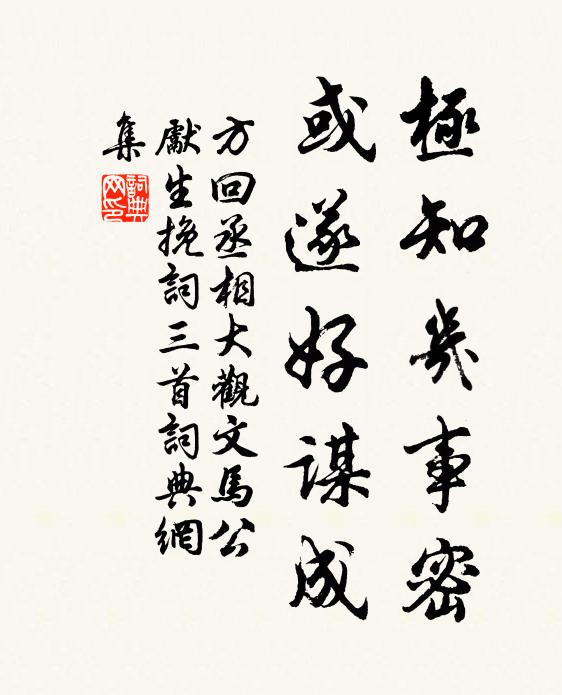 極知幾事密
或遂好謀成
方回丞相大觀文馬公
獻生挽詞三首詞典網
集
詞典網印